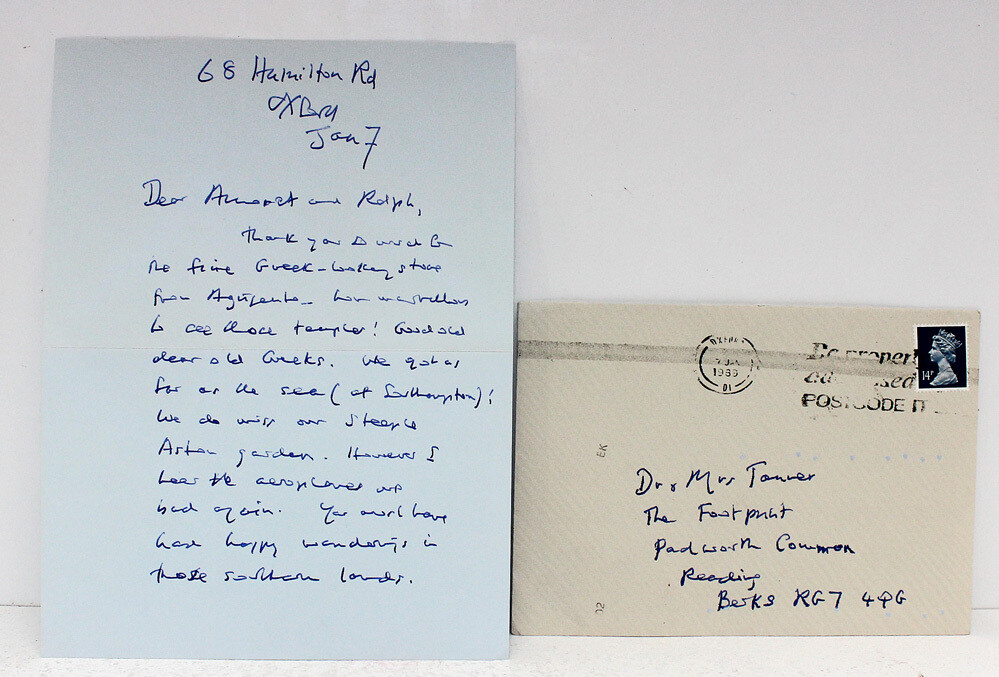 68 Hamilton Rd
Oxford
Jan 7
Dear and Ralph,
Thank you so much for
the fine Greek-looking stone
from Agrigento - how marvellous
to see those temples! Good old
dear old Greeks. We got as
far as the sea (at Southampton)!
We do miss our Steeple
Aston garden. However I
hear the aeroplanes are
bad again. You must have
had happy wanderings in
those southern lands.
OXFORD
1988
01
POSTCODE IT
14
EK
02
Dr & Mrs Tanner
The Footprint
Padworth Common
Reading
Berks RG7 4QG